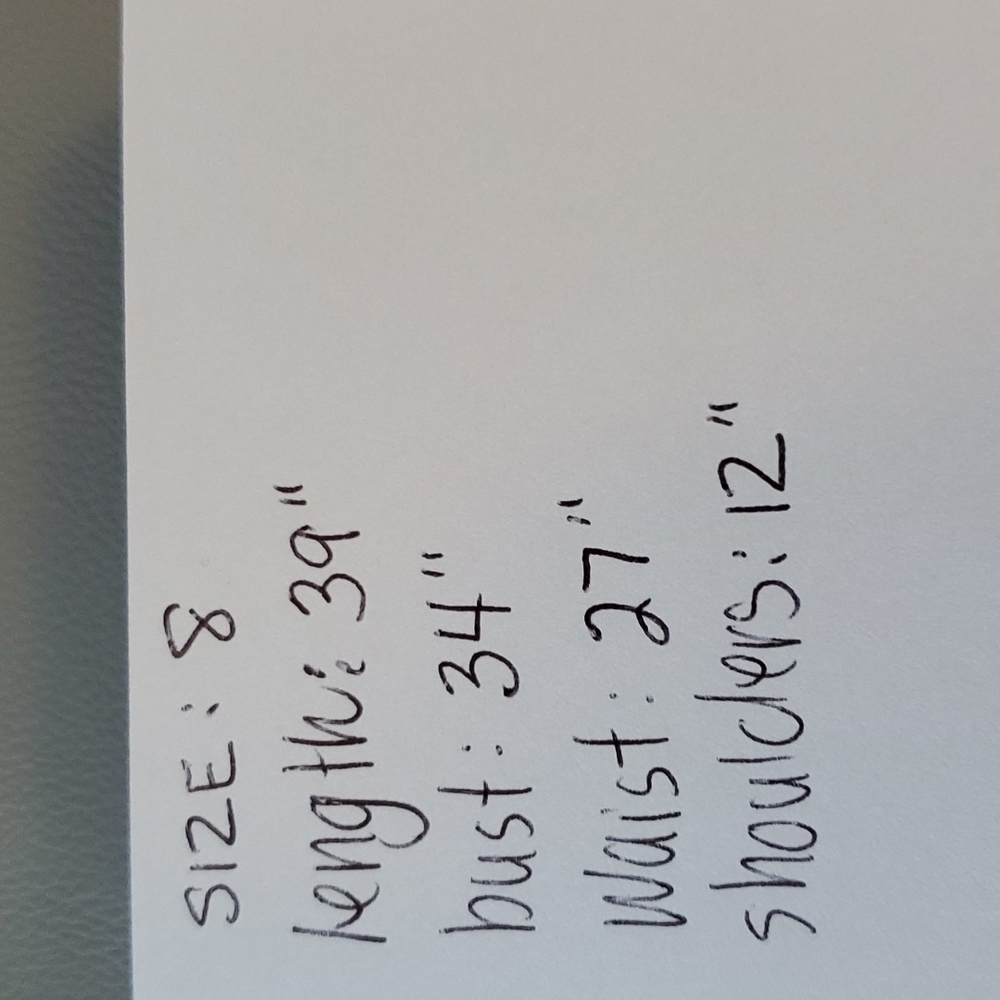 SIZE: 8
length: 39"
bust: 34"
Waist: 27"
shoulders: 12"